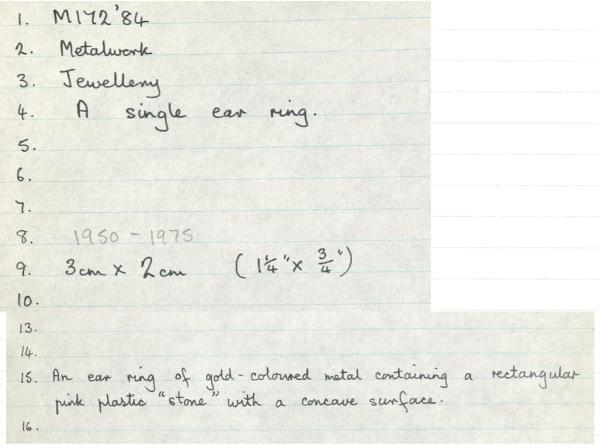 1. M172'84
2. Metalwork
3. Jewellery
4. A single ear ring.
5.
6.
7.
8. 1950 - 1975
9. 3cm x 2cm (1¼" x ¾")
10.
13.
14.
15. An ear ring of gold-coloured metal containing a rectangular
pink plastic "stone" with a concave surface.
16.